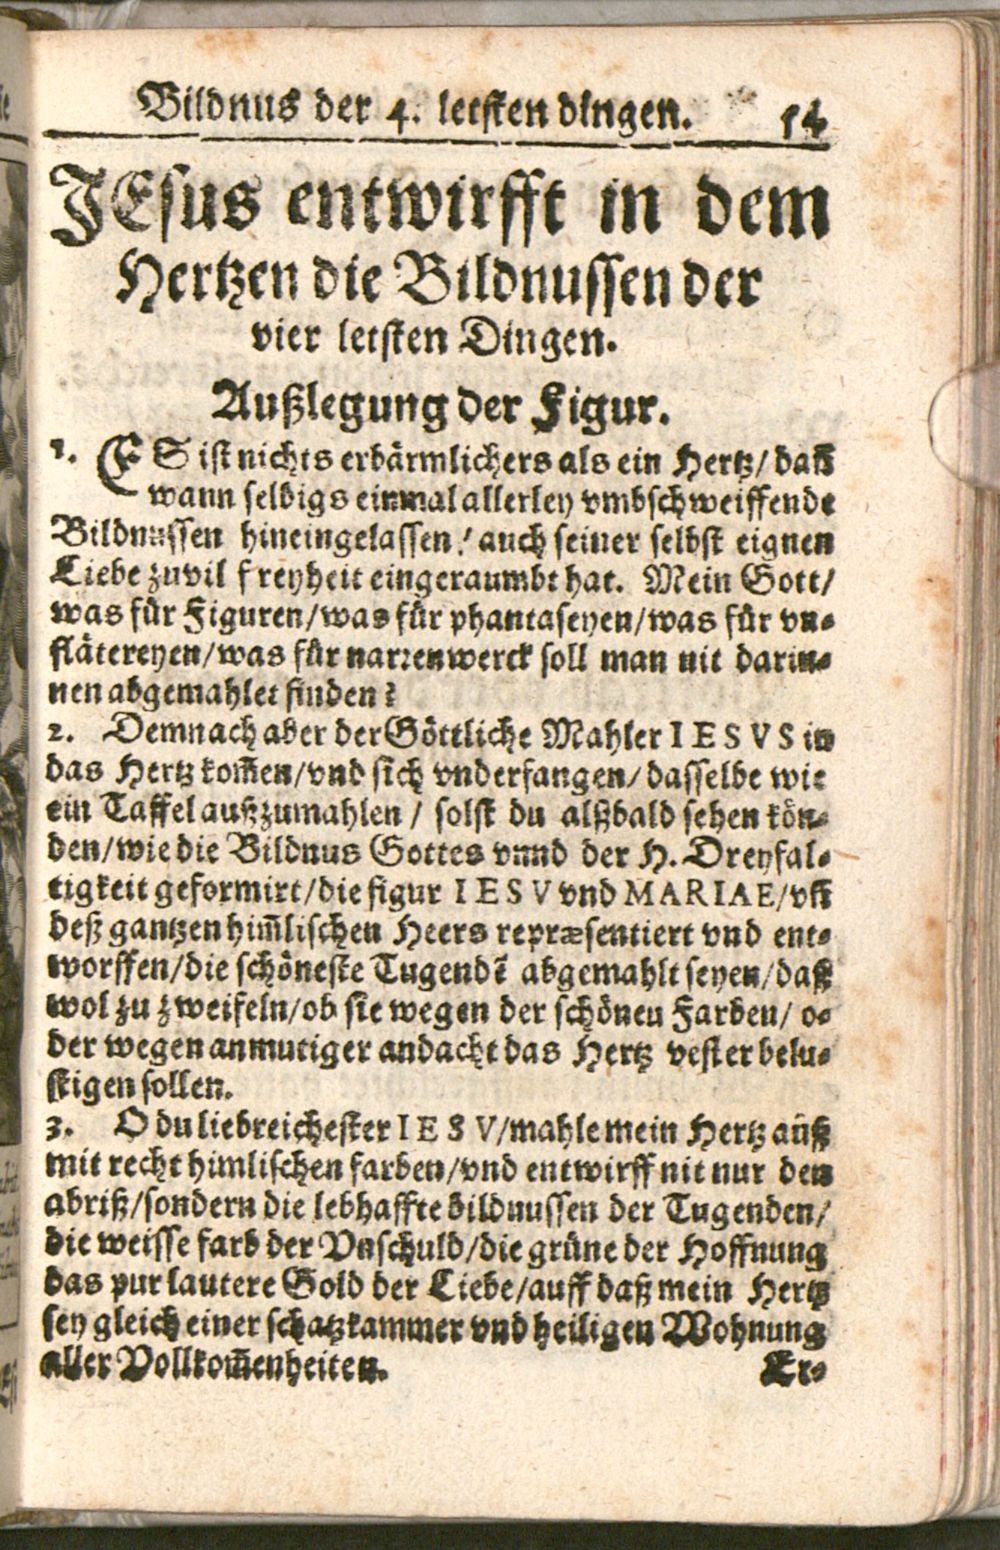 Bildnus der 4. letsten dingen. 54
JEsus entwirfft in dem
Hertzen die Bildnussen der
vier letsten Dingen.
Außlegung der Figur.
1. ES ist nichts erbärmlichers als ein Hertz/ dañ
wann selbigs einmal allerley vmbschweiffende
Bildnussen hineingelassen/ auch seiner selbst eignen
Liebe zuvil freyheit eingeraumbt hat. Mein Gott/
was für Figuren/was für phantaseyen/was für vn-
flätereyen/was für narrenwerck soll man nit darin-
nen abgemahlet finden?
2. Demnach aber der Göttliche Mahler IESVS in
das Hertz kom̃en/vnd sich vnderfangen/dasselbe wie
ein Taffel außzumahlen / solst du alßbald sehen kön-
den/wie die Bildnus Gottes vnnd der H. Dreyfal-
tigkeit geformirt/die figur IESV vnd MARIAE/vñ
deß gantzen him̃lischen Heers repræsentiert vnd ent-
worffen/die schöneste Tugendẽ abgemahlt seyen/daß
wol zu zweifeln/ob sie wegen der schönen Farben/ o-
der wegen anmutiger andacht das Hertz vester belu-
stigen sollen.
3. O du liebreichester IESV/mahle mein Hertz auß
mit recht himlischen farben/vnd entwirff nit nur den
abriß/sondern die lebhaffte bildnussen der Tugenden/
die weisse farb der Vnschuld/die grüne der Hoffnung
das pur lautere Gold der Liebe/auff daß mein Hertz
sey gleich einer schatzkammer vnd heiligen Wohnung
aller Vollkom̃enheiten. Er-